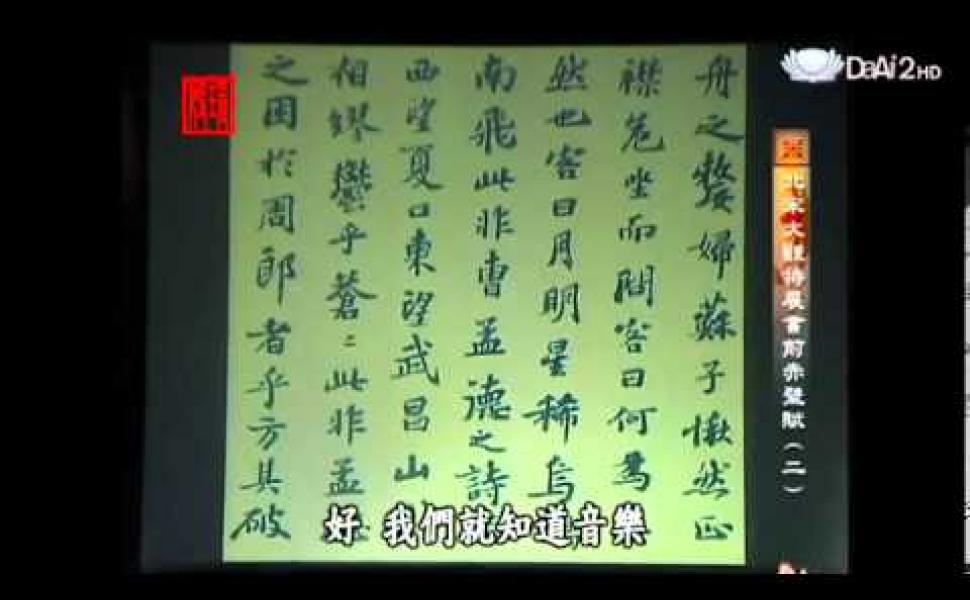 DaAi2 HD
北宋大觀特展書前赤壁賦（二）
舟之嫠婦蘇子愀然正
襟危坐而問客曰何為
然也客曰月明星稀烏
南飛此非曹孟德之詩
西望夏口東望武昌山
相繆鬱乎蒼〻此非孟
之困於周郎者乎方其破
好 我們就知道音樂